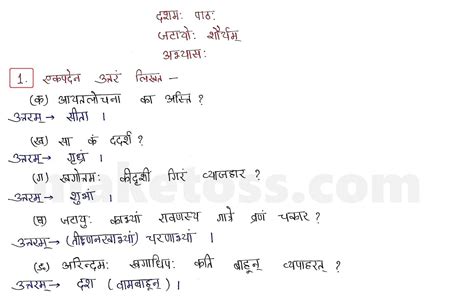 दशमः पाठः
जटायोः शौर्यम्
अभ्यासः
1. एकपदेन उत्तरं लिखत –
(क) आयतलोचना का अस्ति ?
उत्तरम् → सीता ।
(ख) सा कं ददर्श ?
उत्तरम् → गृध्रं ।
(ग) खगोत्तमः कीदृशीं गिरं व्याजहार ?
उत्तरम् → शुभां ।
(घ) जटायुः काभ्यां रावणस्य गात्रे व्रणं चकार ?
उत्तरम् → (तीक्ष्णनखाभ्यां) चरणाभ्यां ।
(ङ) अरिन्दमः खगाधिपः कति बाहून् व्यपाहरत् ?
उत्तरम् → दश (वामबाहून्) ।
maketoss.com